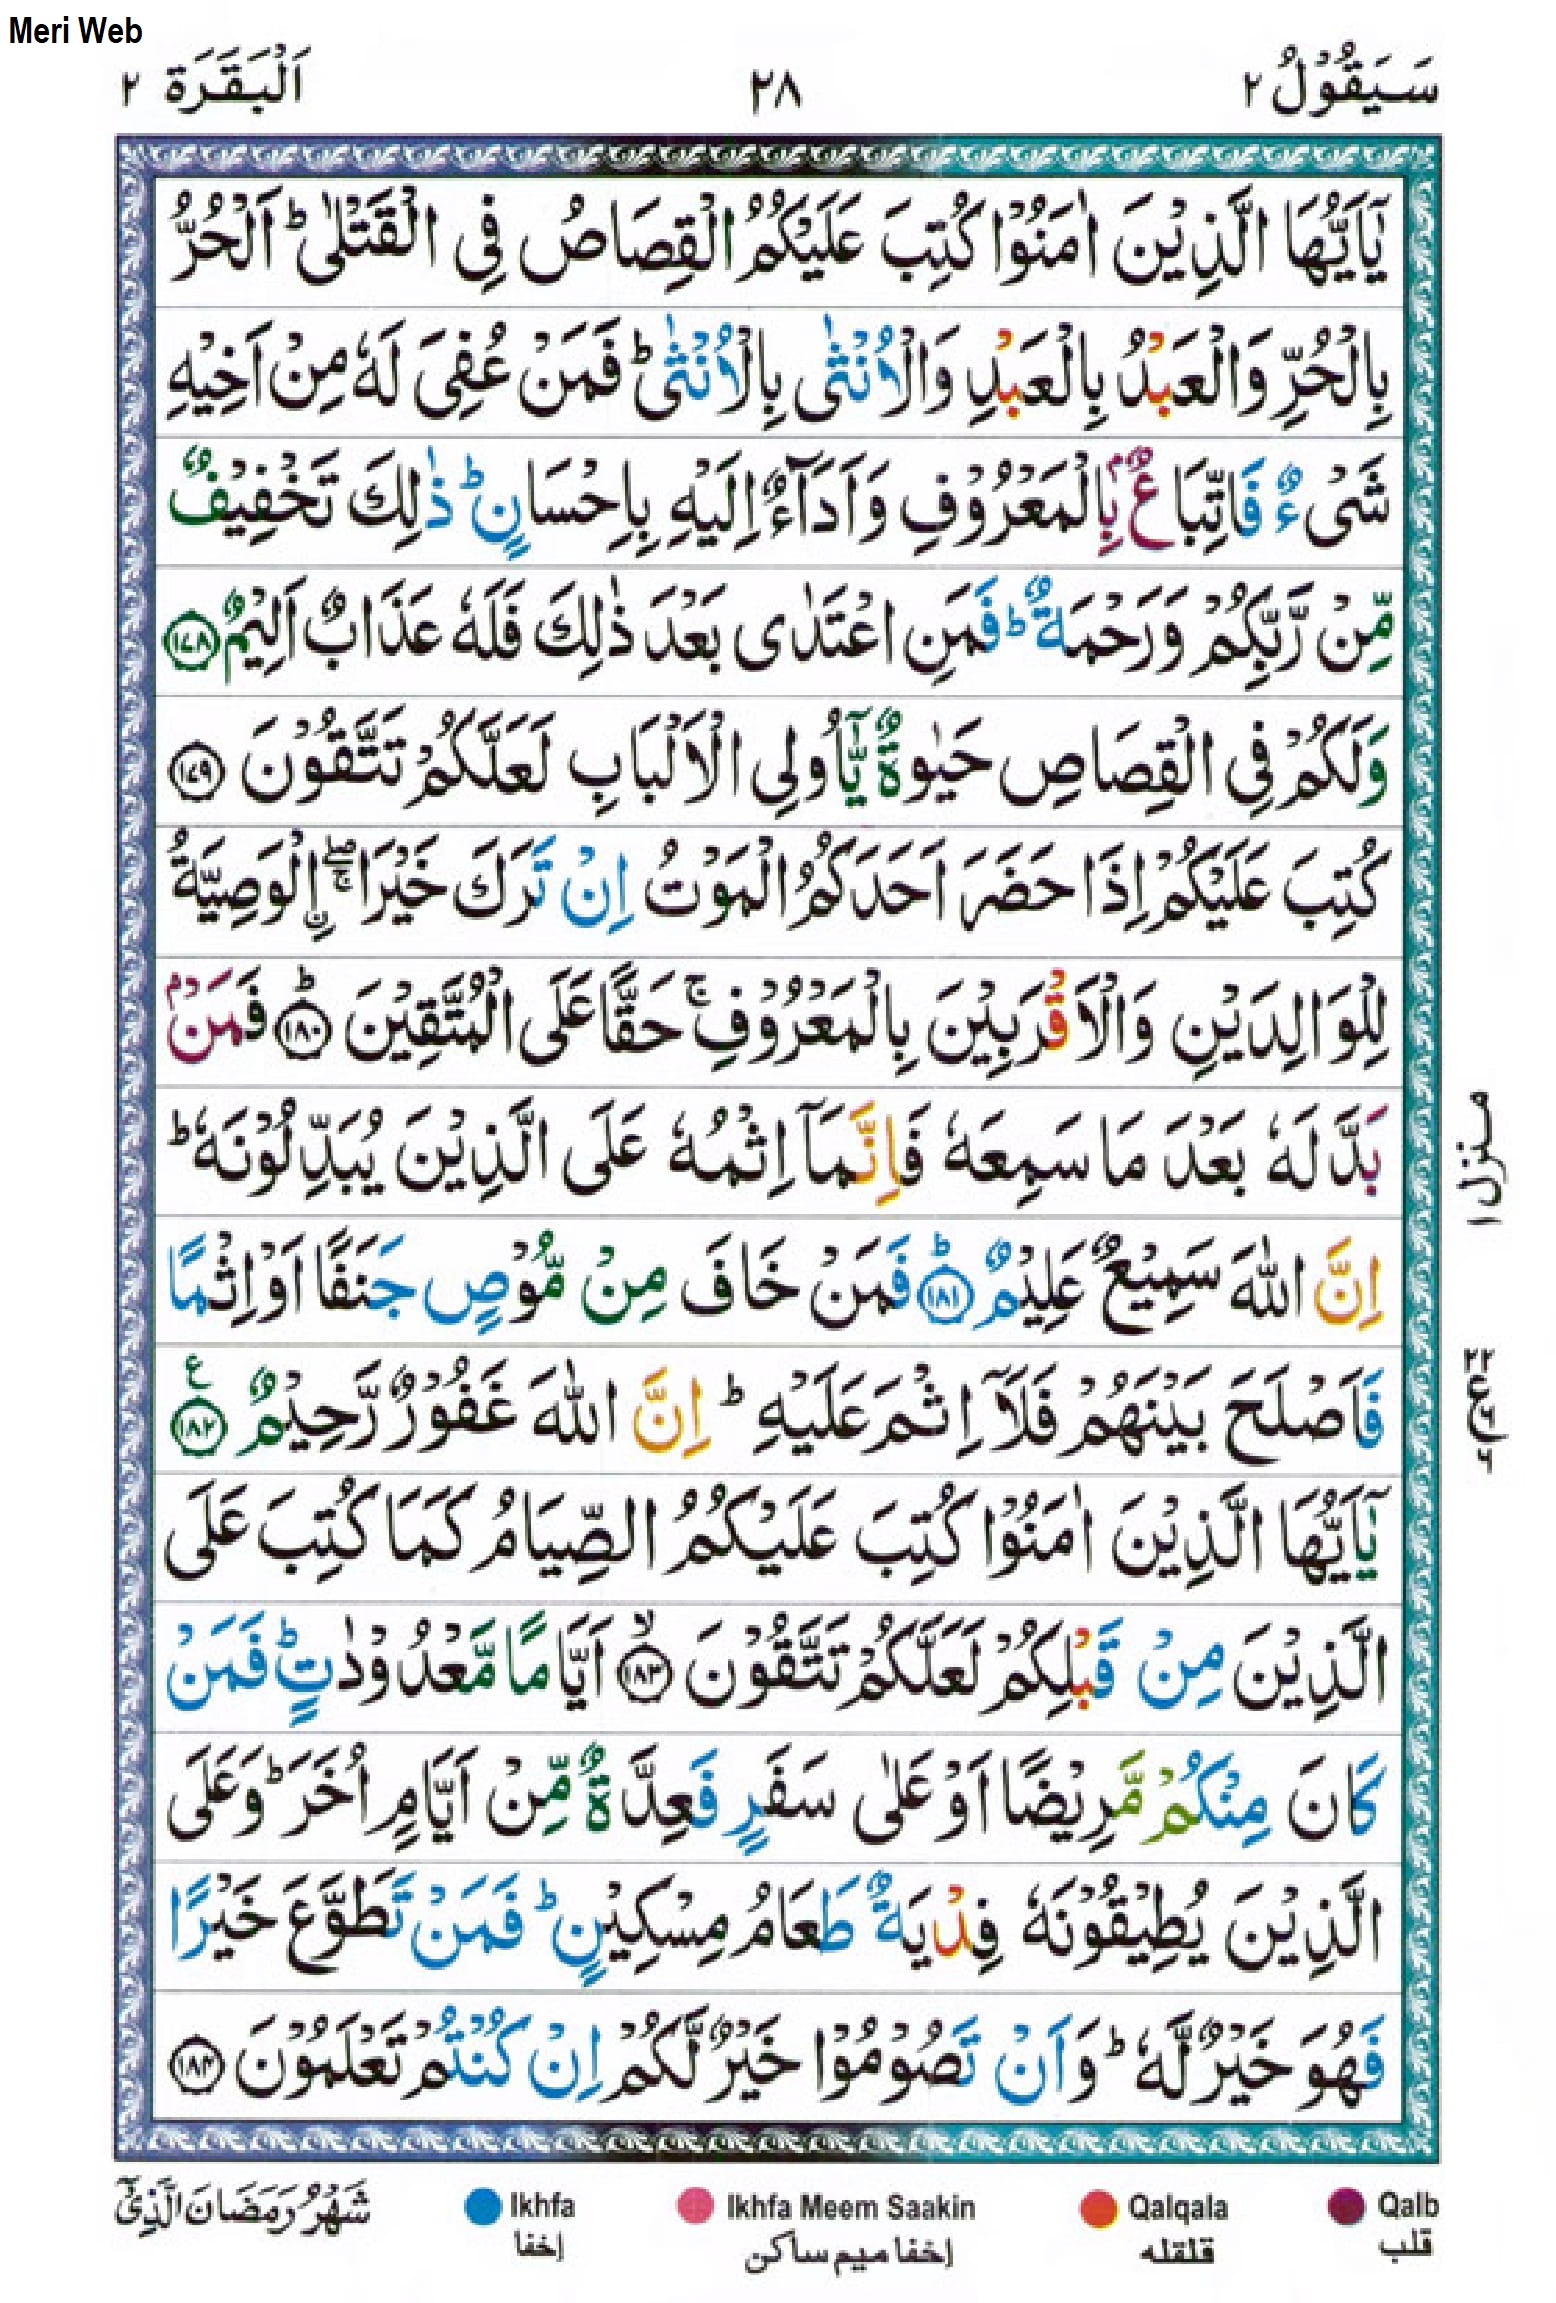 Meri Web
سَيَقُوۡلُ ٢
٢٨
اَلۡبَقَرَة ٢
يٰۤاَيُّهَا الَّذِيۡنَ اٰمَنُوۡا كُتِبَ عَلَيۡكُمُ الۡقِصَاصُ فِى الۡقَتۡلٰى ؕ اَلۡحُرُّ
بِالۡحُرِّ وَالۡعَبۡدُ بِالۡعَبۡدِ وَالۡاُنۡثٰى بِالۡاُنۡثٰى ؕ فَمَنۡ عُفِىَ لَهٗ مِنۡ اَخِيۡهِ
شَىۡءٌ فَاتِّبَاعٌۢ بِالۡمَعۡرُوۡفِ وَاَدَآءٌ اِلَيۡهِ بِاِحۡسَانٍ ؕ ذٰلِكَ تَخۡفِيۡفٌ
مِّنۡ رَّبِّكُمۡ وَرَحۡمَةٌ ؕ فَمَنِ اعۡتَدٰى بَعۡدَ ذٰلِكَ فَلَهٗ عَذَابٌ اَلِيۡمٌ ‏﴿۱۷۸﴾‏
وَلَكُمۡ فِى الۡقِصَاصِ حَيٰوةٌ يّٰۤاُولِى الۡاَلۡبَابِ لَعَلَّكُمۡ تَتَّقُوۡنَ ‏﴿۱۷۹﴾‏
كُتِبَ عَلَيۡكُمۡ اِذَا حَضَرَ اَحَدَكُمُ الۡمَوۡتُ اِنۡ تَرَكَ خَيۡرَا ۖۚ اۨلۡوَصِيَّةُ
لِلۡوَالِدَيۡنِ وَالۡاَقۡرَبِيۡنَ بِالۡمَعۡرُوۡفِ ۚ حَقًّا عَلَى الۡمُتَّقِيۡنَ ؕ ‏﴿۱۸۰﴾‏ فَمَنۡۢ
بَدَّلَهٗ بَعۡدَ مَا سَمِعَهٗ فَاِنَّمَاۤ اِثۡمُهٗ عَلَى الَّذِيۡنَ يُبَدِّلُوۡنَهٗ ؕ
اِنَّ اللّٰهَ سَمِيۡعٌ عَلِيۡمٌ ؕ ‏﴿۱۸۱﴾‏ فَمَنۡ خَافَ مِنۡ مُّوۡصٍ جَنَفًا اَوۡ اِثۡمًا
فَاَصۡلَحَ بَيۡنَهُمۡ فَلَاۤ اِثۡمَ عَلَيۡهِ ؕ اِنَّ اللّٰهَ غَفُوۡرٌ رَّحِيۡمٌ ‏﴿۱۸۲﴾‏ ع
يٰۤاَيُّهَا الَّذِيۡنَ اٰمَنُوۡا كُتِبَ عَلَيۡكُمُ الصِّيَامُ کَمَا كُتِبَ عَلَى
الَّذِيۡنَ مِنۡ قَبۡلِکُمۡ لَعَلَّكُمۡ تَتَّقُوۡنَ ۙ ‏﴿۱۸۳﴾‏ اَيَّامًا مَّعۡدُوۡدٰتٍؕ فَمَنۡ
كَانَ مِنۡكُمۡ مَّرِيۡضًا اَوۡ عَلٰى سَفَرٍ فَعِدَّةٌ مِّنۡ اَيَّامٍ اُخَرَؕ وَعَلَى
الَّذِيۡنَ يُطِيۡقُوۡنَهٗ فِدۡيَةٌ طَعَامُ مِسۡكِيۡنٍؕ فَمَنۡ تَطَوَّعَ خَيۡرًا
فَهُوَ خَيۡرٌ لَّهٗ ؕ وَاَنۡ تَصُوۡمُوۡا خَيۡرٌ لَّـکُمۡ اِنۡ كُنۡتُمۡ تَعۡلَمُوۡنَ ‏﴿۱۸۴﴾‏
منزل ١
ع
شَهۡرُ رَمَضَانَ الَّذِىۡۤ
Ikhfa
Ikhfa Meem Saakin
Qalqala
Qalb
إخفا
إخفا ميم ساكن
قلقله
قلب